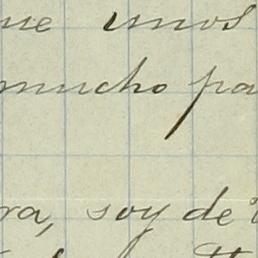 ue unos
mucho pa
ra, soy de